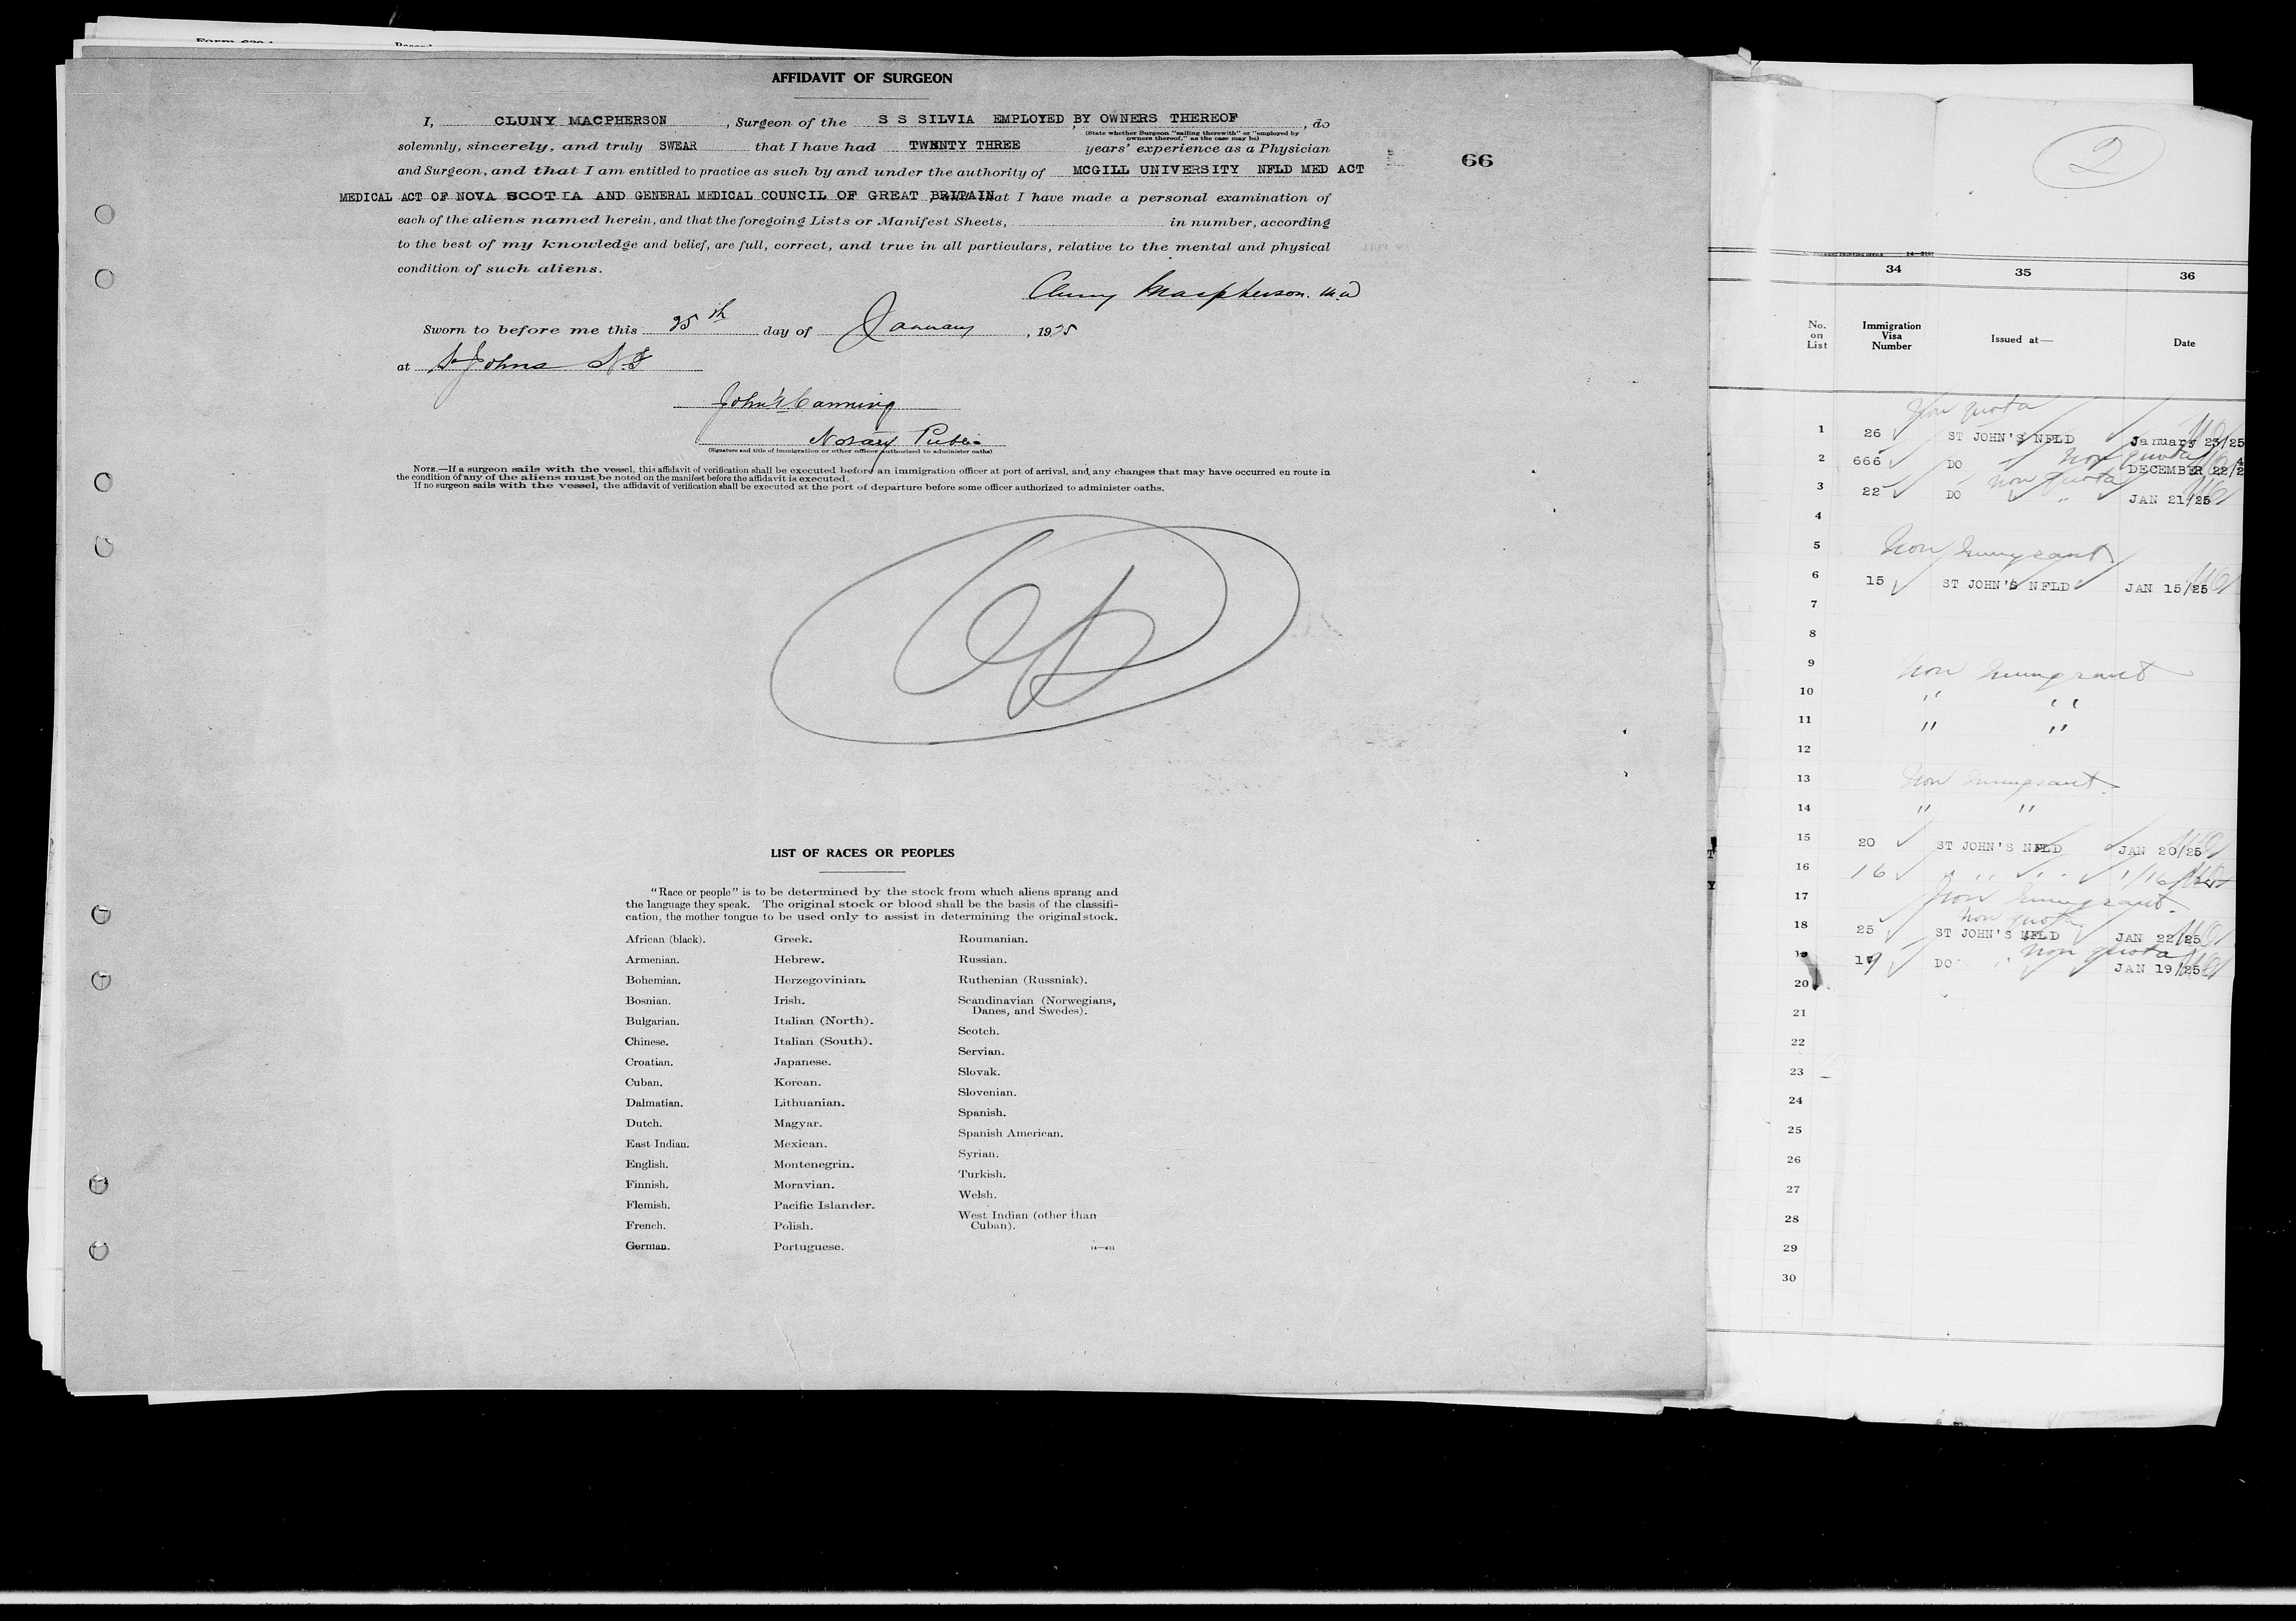 AFFIDAVIT OF SURGEON
I, CLUNY MACPHERSON, Surgeon of the S S SILVIA EMPLOYED BY OWNERS THEREOF, do
(State whether Surgeon "sailing therewith" or "employed by
owners thereof," as the case may be)
solemnly, sincerely, and truly SWEAR that I have had TWENTY THREE years' experience as a Physician
and Surgeon, and that I am entitled to practice as such by and under the authority of MCGILL UNIVERSITY NFLD MED ACT
MEDICAL ACT OF NOVA SCOTIA AND GENERAL MEDICAL COUNCIL OF GREAT BRITAIN that I have made a personal examination of
each of the aliens named herein, and that the foregoing Lists or Manifest Sheets, in number, according
to the best of my knowledge and belief, are full, correct, and true in all particulars, relative to the mental and physical
condition of such aliens.
Cluny Macpherson. M.D
Sworn to before me this 25th day of January, 1925
at St Johns N.F
Canning
Notary Public
(Signature and title of immigration or other officer authorized to administer oaths)
NOTE.—If a surgeon sails with the vessel, this affidavit of verification shall be executed before an immigration officer at port of arrival, and any changes that may have occurred en route in
the condition of any of the aliens must be noted on the manifest before the affidavit is executed.
If no surgeon sails with the vessel, the affidavit of verification shall be executed at the port of departure before some officer authorized to administer oaths.
66
LIST OF RACES OR PEOPLES
"Race or people" is to be determined by the stock from which aliens sprang and
the language they speak. The original stock or blood shall be the basis of the classifi-
cation, the mother tongue to be used only to assist in determining the original stock.
African (black).
Armenian.
Bohemian.
Bosnian.
Bulgarian.
Chinese.
Croatian.
Cuban.
Dalmatian.
Dutch.
East Indian.
English.
Finnish.
Flemish.
French.
German.
Greek.
Hebrew.
Herzegovinian.
Irish.
Italian (North).
Italian (South).
Japanese.
Korean.
Lithuanian.
Magyar.
Mexican.
Montenegrin.
Moravian.
Pacific Islander.
Polish.
Portuguese.
Roumanian.
Russian.
Ruthenian (Russniak).
Scandinavian (Norwegians,
Danes, and Swedes).
Scotch.
Servian.
Slovak.
Slovenian.
Spanish.
Spanish American.
Syrian.
Turkish.
Welsh.
West Indian (other than
Cuban).
14—431
2
34 35 36
No. on List Immigration Visa Number Issued at— Date
Non quota
1 26 ST JOHN'S NFLD January 23/25
Non quota
2 666 DO DECEMBER 22/2
Non quota
3 22 DO " JAN 21/25
4
5 Non Immigrant
6 15 ST JOHN'S NFLD JAN 15/25
7
8
9 Non Immigrant
10 " "
11 " "
12
13 Non Immigrant
14 " "
15 20 ST JOHN'S NFLD JAN 20/25
16 16 " " " 1/16/25
17 Non Immigrant
Non quota
18 25 ST JOHN'S NFLD JAN 22/25
Non quota
19 19 DO JAN 19/25
20
21
22
23
24
25
26
27
28
29
30